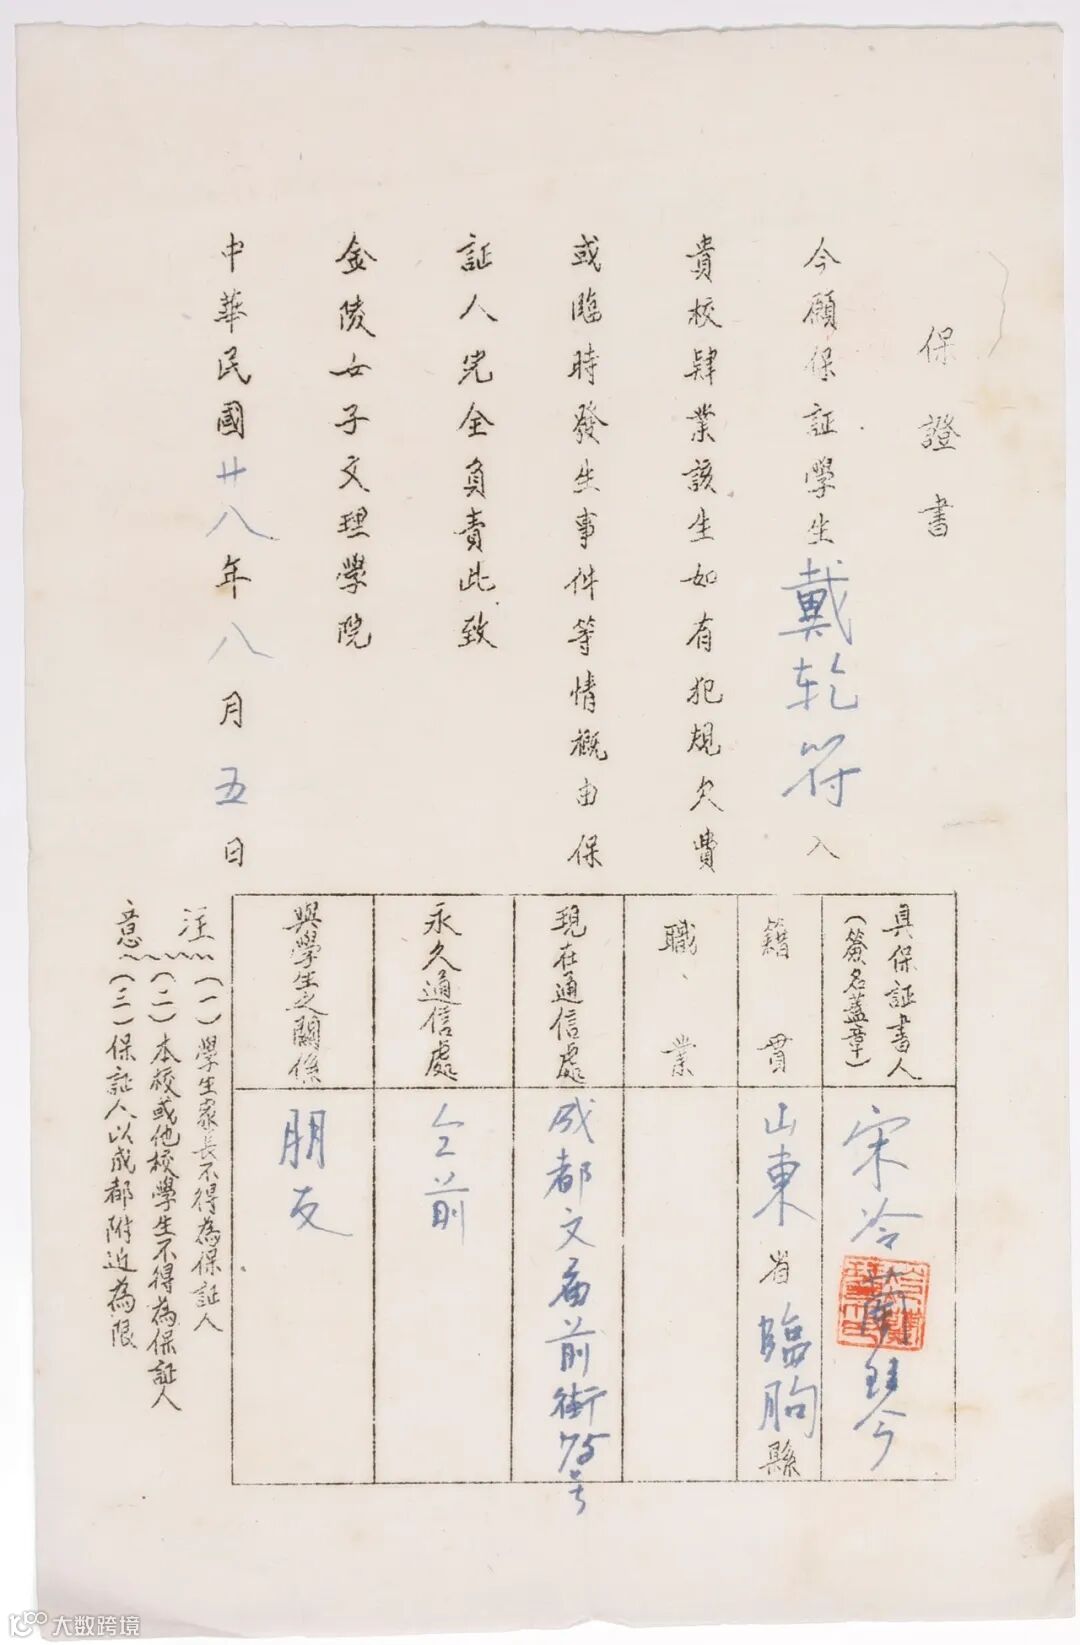 保證書
今願保証學生戴乾符入
貴校肄業該生如有犯規欠費
或臨時發生事件等情概由保
証人完全負責此致
金陵女子文理學院
中華民國廿八年八月五日
具保証書人
(簽名蓋章)
宋冷蘭琴
籍貫
山東省臨朐縣
職業
現在通信處
成都文庙前街75号
永久通信處
仝前
與學生之關係
朋友
注意
(一)學生家長不得為保証人
(二)本校或他校學生不得為保証人
(三)保証人以成都附近為限
大数跨境